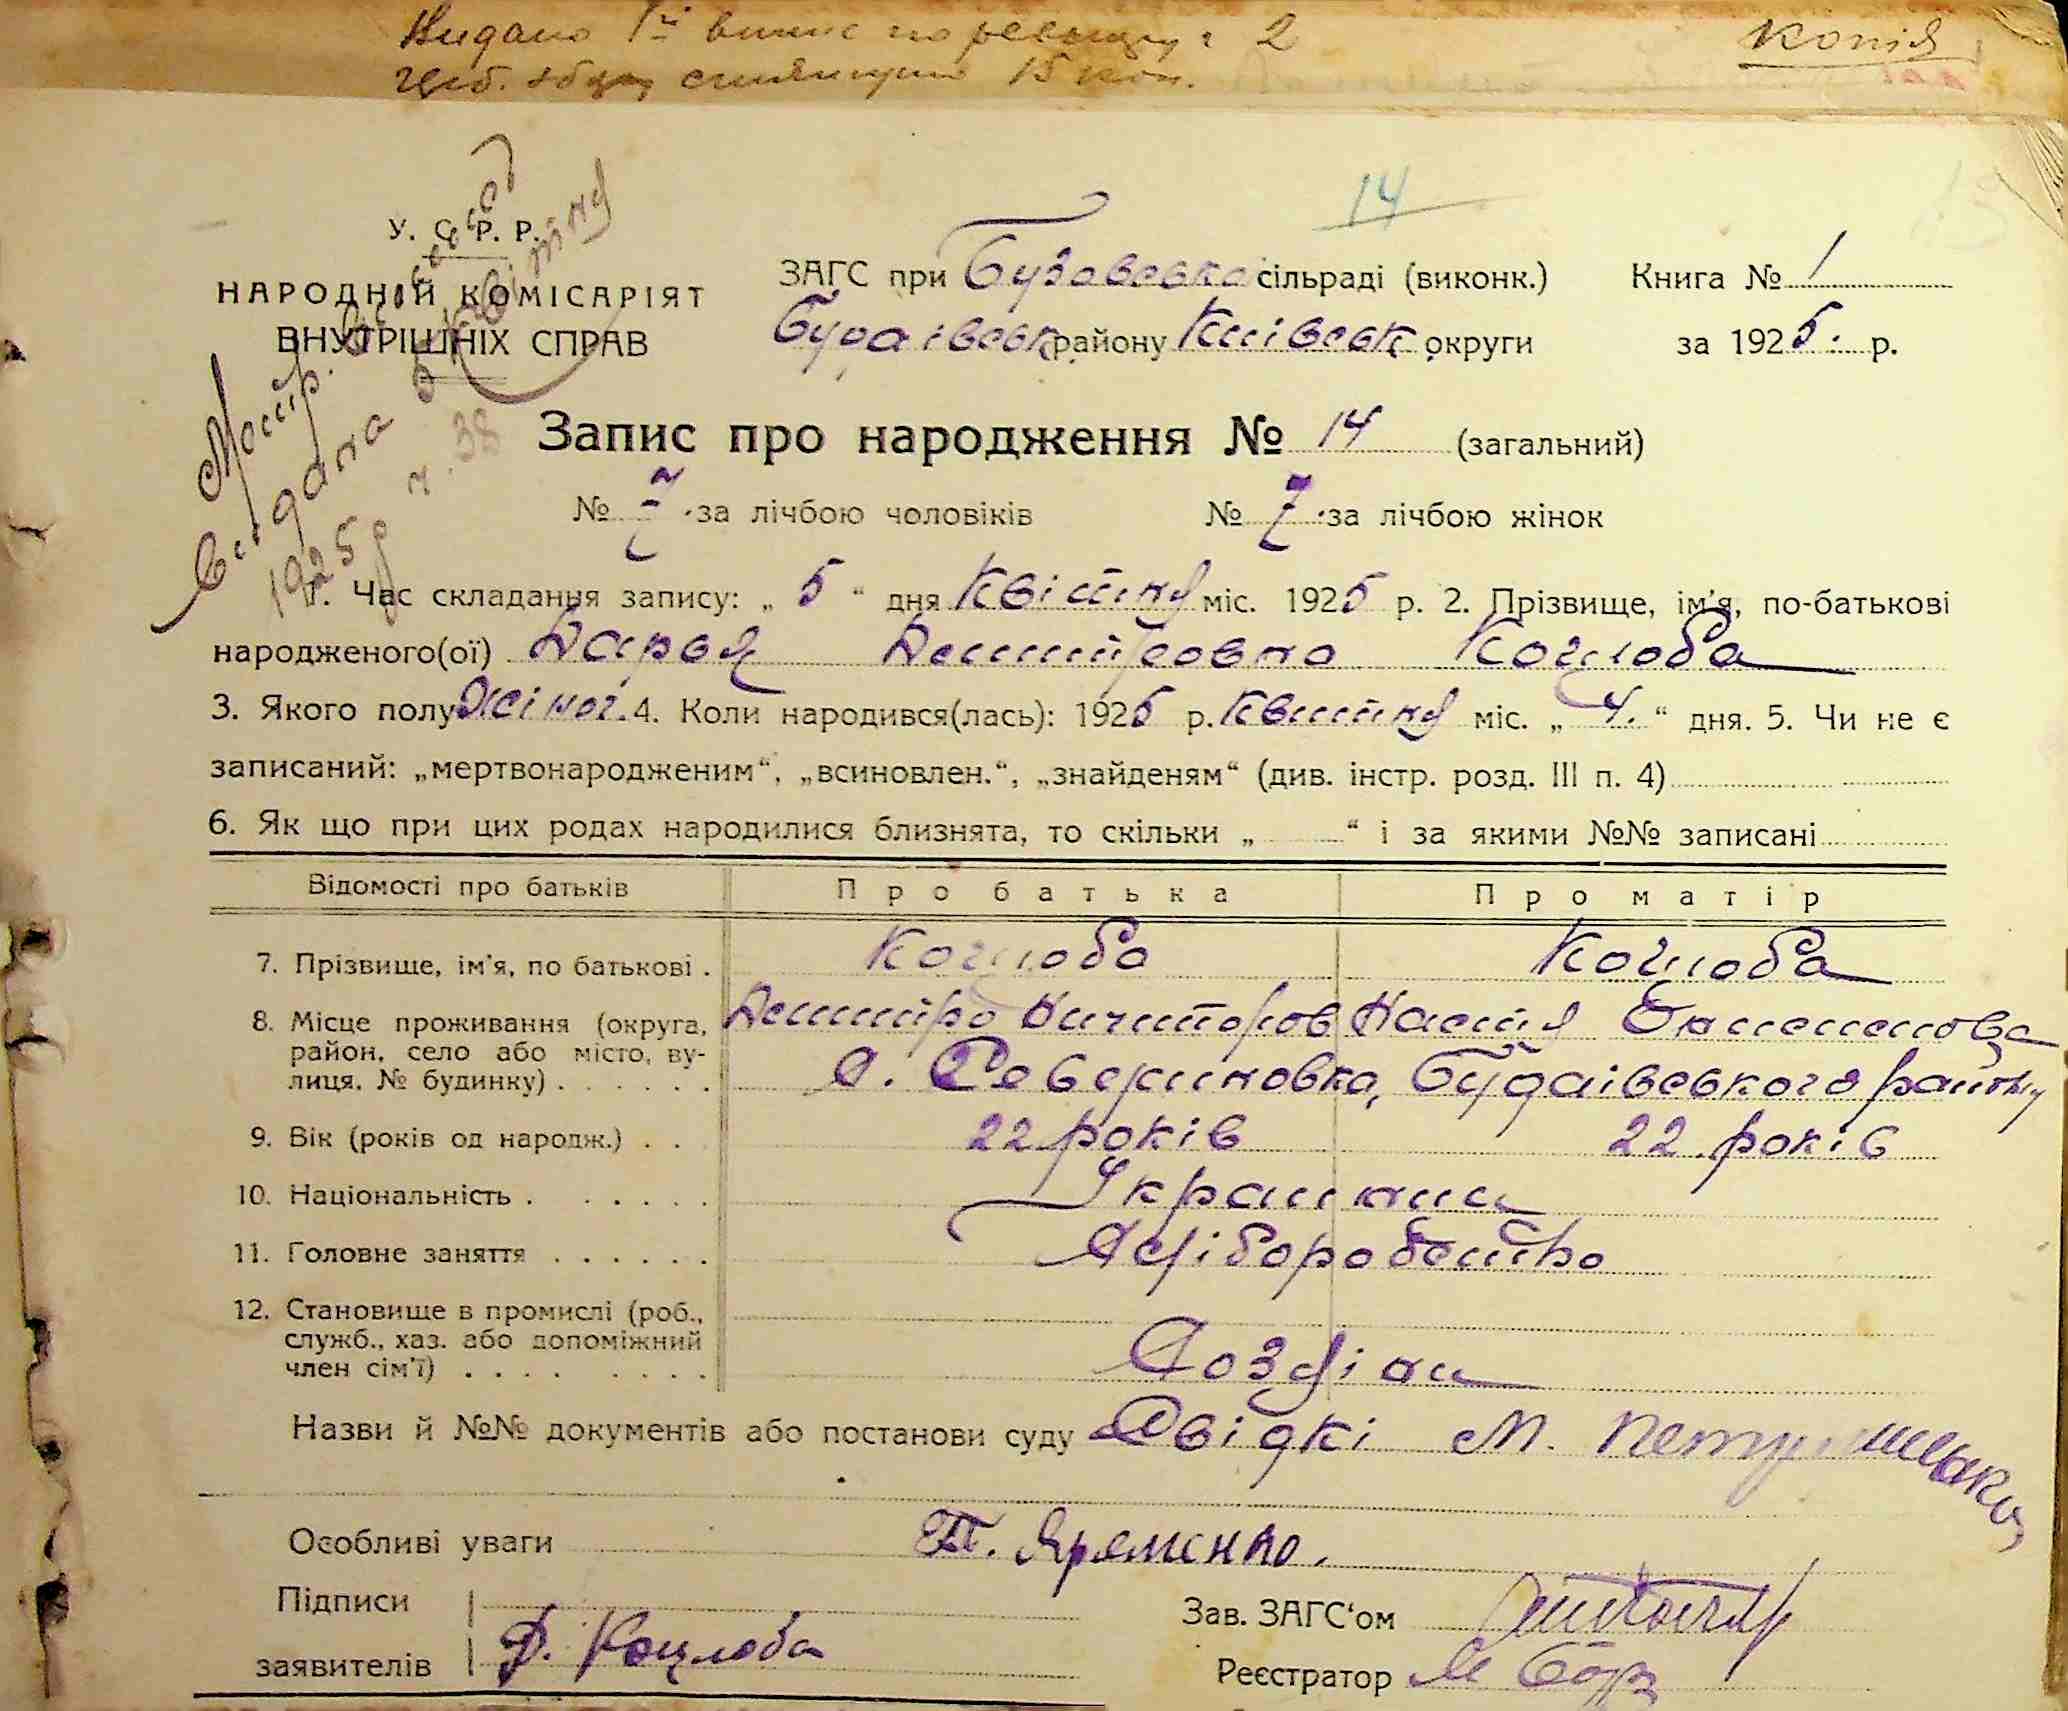 Видано 1й випис по реєстру 2
копія
14
У. С. Р. Р.
НАРОДНІЙ КОМІСАРІЯТ
ВНУТРІШНІХ СПРАВ
ЗАГС при Бузовській сільраді (виконк.) Книга № 1
Будаївськ району Київськ округи за 1925. р.
видана 5 квітня
1925 р ч. 38
Запис про народження № 14 (загальний)
№ 7 за лічбою чоловіків № 7 за лічбою жінок
1. Час складання запису: „ 5 “ дня квітня міс. 1925 р. 2. Прізвище, ім'я, по-батькові
народженого(ої) Дарья Демитровна Коцюба
3. Якого полу жіноч. 4. Коли народився(лась): 1925 р. квитня міс. „ 4. “ дня. 5. Чи не є
записаний: „мертвонародженим“, „всиновлен.“, „знайденям“ (див. інстр. розд. III п. 4)
6. Як що при цих родах народилися близнята, то скільки „ “ і за якими №№ записані
Відомості про батьків Про батька Про матір
7. Прізвище, ім'я, по батькові . Коцюба Коцюба
8. Місце проживання (округа, Демитро Ничипоров Настя
район, село або місто, ву- с. Северановка, Будаівського району
лиця, № будинку) . . . . . .
9. Вік (років од народж.) . . 22 років 22 років
10. Національність . . . . . . Украинци
11. Головне заняття . . . . . . Хліборобство
12. Становище в промислі (роб.,
служб., хаз. або допоміжний
член сім'ї) . . . . . . . . Хозяіни
Назви й №№ документів або постанови суду Свідкі М.
Особливі уваги П. Яременко.
Підписи
заявителів Д. Коцюба
Зав. ЗАГС'ом
Реєстратор